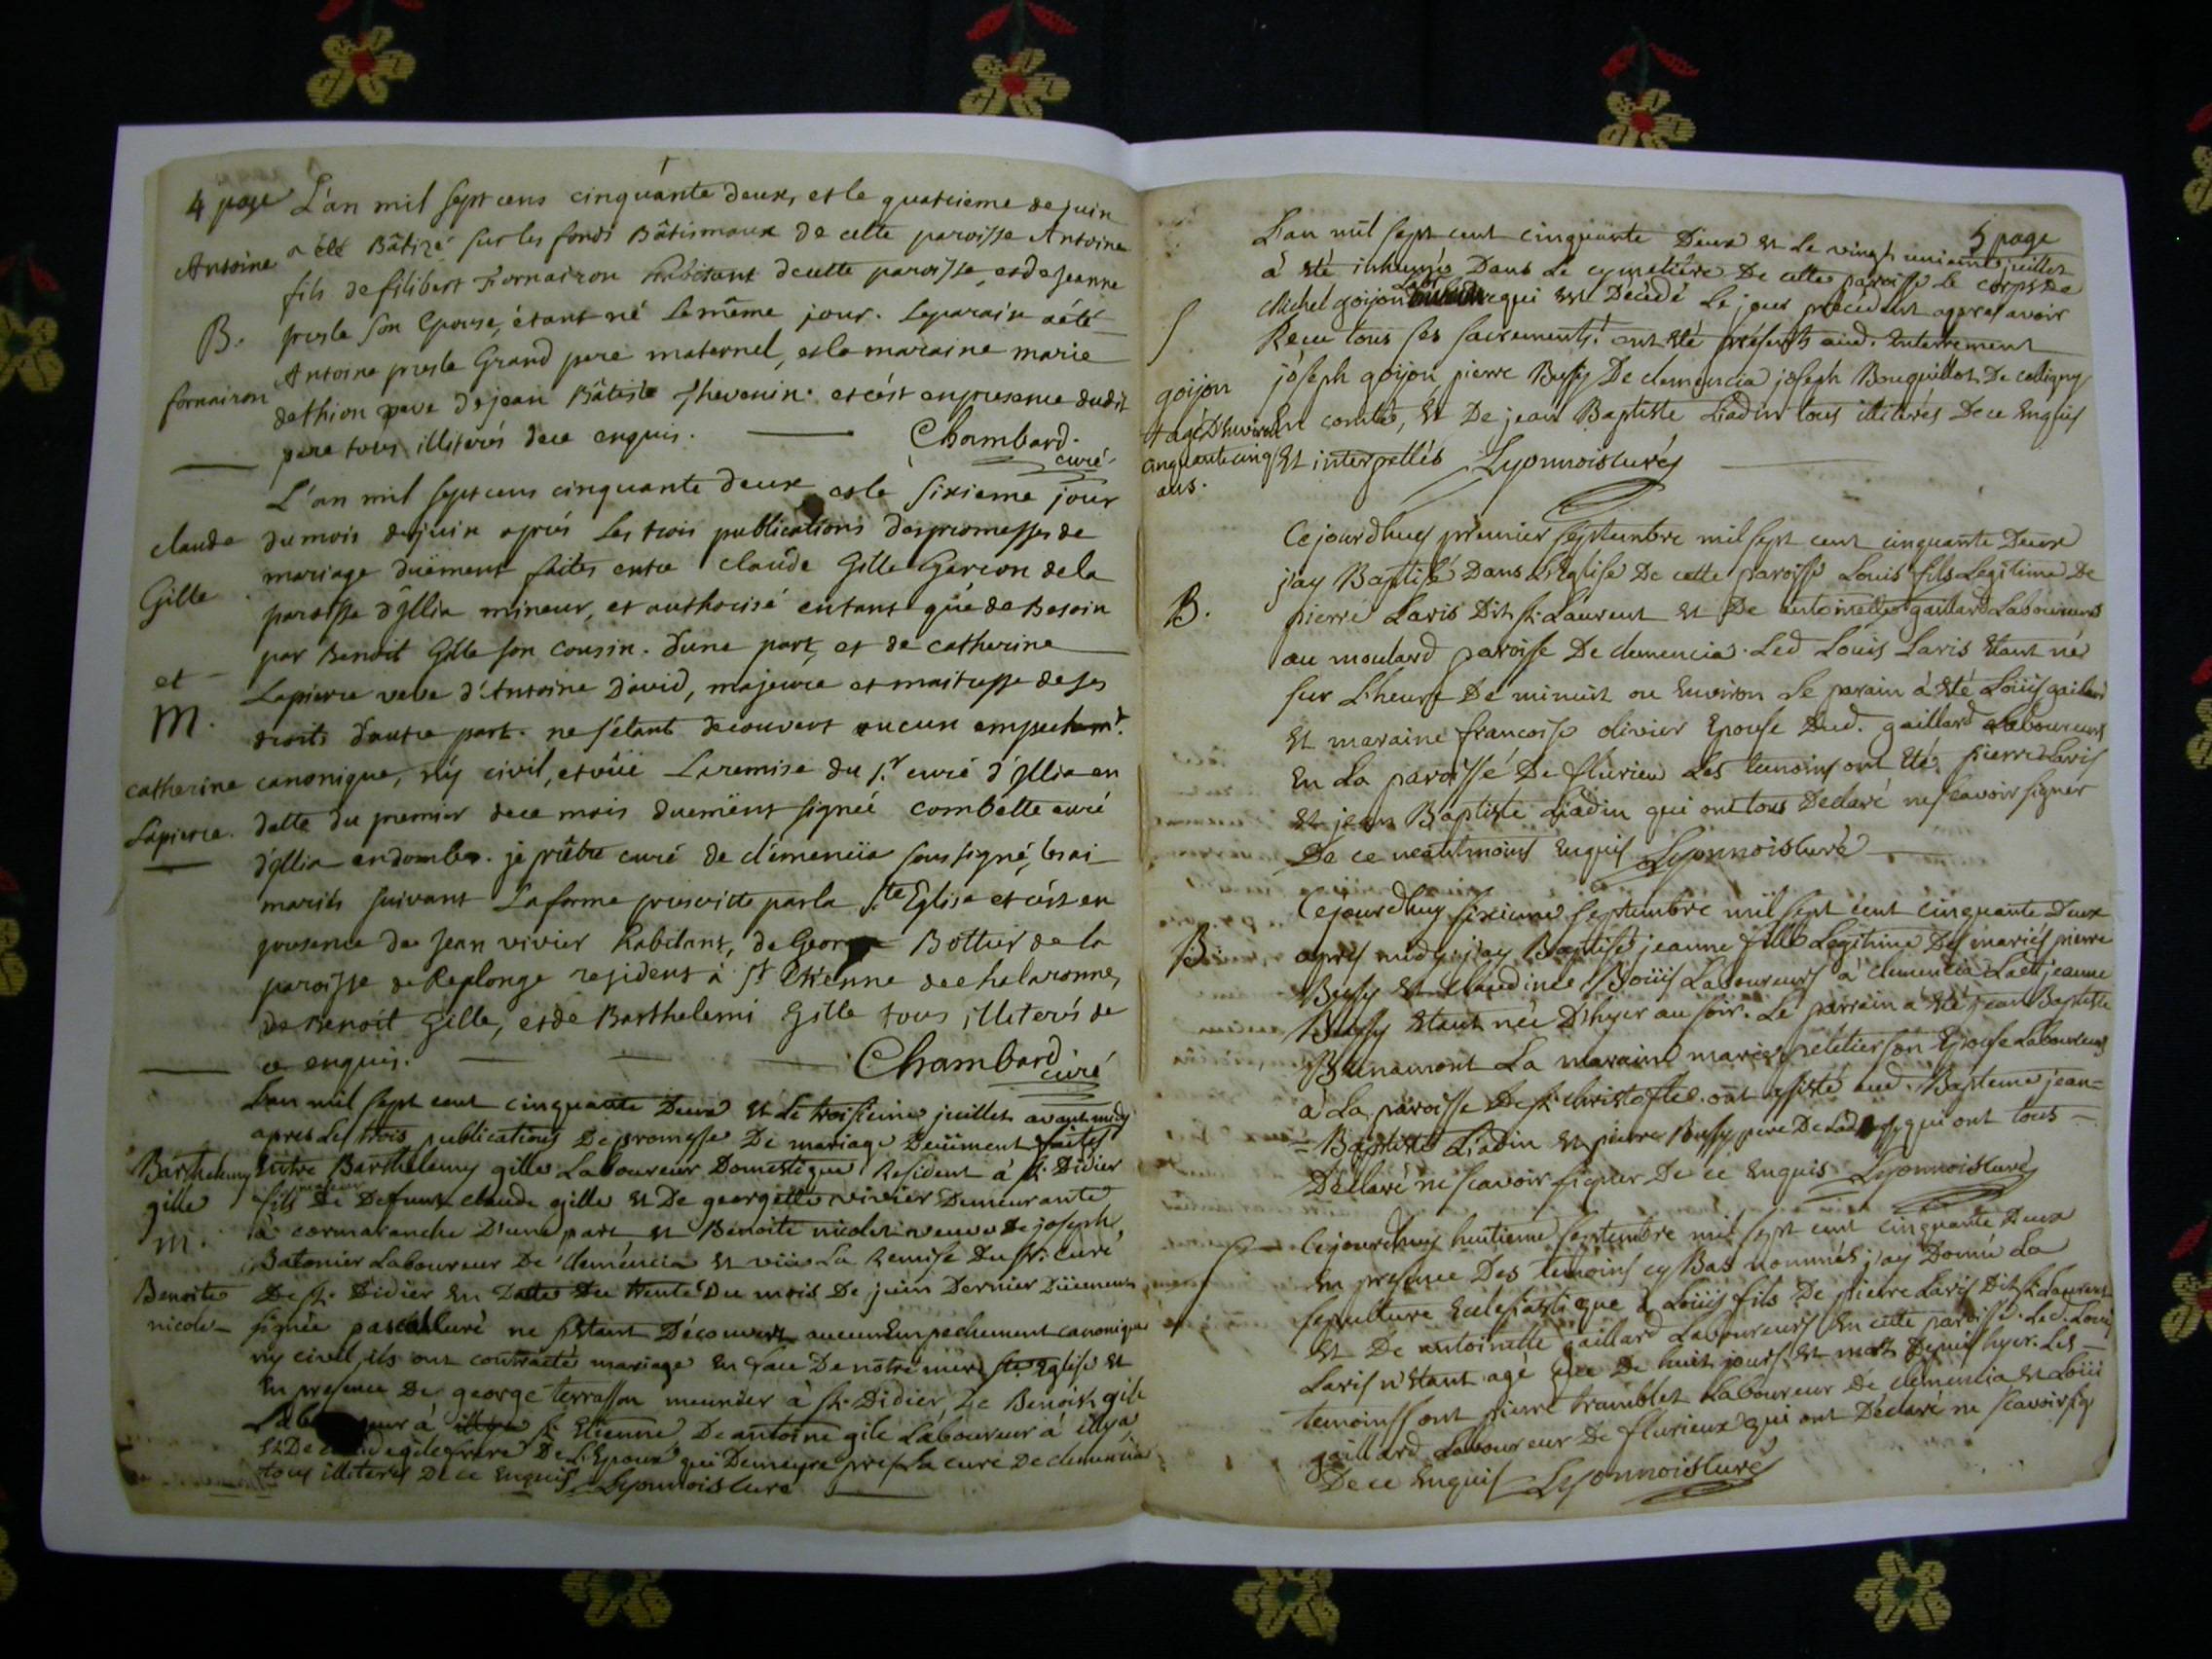 4 page L'an mil sept cens cinquante deux, et le quatrieme de juin
Antoine a été Bâtizé sur les fonds Bâtismaux de cette paroisse Antoine
fils de filibert Fornairon habitant de cette paroisse, et de Jeanne
B. presle son Epouse, étant né le même jour. Le parain a été
Antoine presle Grand pere maternel, et la maraine marie
fornairon dethion de jean Bâtiste Thevenin. et c'est en presence dudit
pere tous illiterés de ce enquis. Chambard
curé
L'an mil sept cens cinquante deux et le sixieme jour
claude du mois de juin aprés les trois publications des promesses de
mariage duëment faites entre claude Gille Garcon de la
Gille paroisse d'Jllia mineur, et authorisé entant que de Besoin
par Benoit Gille son cousin. d'une part, et de catherine
et Lapierre veve d'Antoine David, majeure et maitresse de ses
M. droits d'autre part. ne s'étant decouvert aucun empechemt.
catherine canonique, n'y civil, et vûë La remise du sr. curé d'Jllia en
Lapierre. datte du premier de ce mois duëment signée combette curé
d'Jllia en dombes. je prêtre curé de clémenciia soussigné, les ai
mariés suivant La forme prescritte par la Ste Eglise et c'est en
presence de Jean vivier habitant, de George Bottier de la
paroisse de Replonge resident à St Etienne de chalaronne,
de Benoit Gille, et de Barthelemi Gille tous illiterés de
ce enquis. Chambard
curé
L'an mil sept cent cinquante Deux et le troisieme juillet avant midy
apres Les trois publications De promesse De mariage Deüiment faites
Barthelemy Entre Barthelemy gille Laboureur Domestique Resident à st. Didier
majeur
gille fils De Defunt claude gille et De georgette vivier Demeurante
m. à cormaranche D'une part et Benoite nicolet veuve De joseph
Batonier Laboureur De clemencia et viie La Remise Du sr. Curé
Benoite De st. Didier En Datte Du trente Du mois De juin Dernier Düement
nicolet signée curé ne s'estant Découvert aucun Empechement canonique
ny civil, ils ont contracté mariage En face De nôtre mere ste. Eglise et
En presence De george terrasson meunier à st. Didier, De Benoist gile
à st. Etienne, De antoine gile Laboureur à illya,
Et De gile frere De L'Epoux qui Demeure prés La cure De clemencia
tous illiterés De ce Enquis Lyonnois Curé
5 page
L'an mil sept cent cinquante Deux et Le vingt unieme juillet
à été inhumé Dans Le cymetière De cette paroisse Le corps De
S Michel goijon qui est Décédé Le jour précédent apres avoir
Receu tous ses sacrements: ont été présents aud. Enterrement
goijon joseph goijon, pierre Bussy De clemencia joseph Bouquillot De colligny
agé D'environ En comté, Et De jean Baptiste Liadin tous illiterés De ce Enquis
cinquante cinq Et interpellés Lyonnois Curé
ans.
Cejourd'huy premier septembre mil sept cent cinquante Deux
j'ay Baptisé Dans L'Eglise De cette paroisse Louis fils Legitime De
B. pierre Laris Dit st. Laurent et De antoinette gaillard Laboureurs
au moulard paroisse De clemencia. Led Louis Laris Etant né
sur L'heure De minuit ou Environ Le parain à été Loüis gaillard
Et maraine francoise olivier Epouse Dud. gaillard Laboureurs
En La paroisse De flurieu Les temoins ont été pierre Laris
Et jean Baptiste Liadin qui ont tous Declaré ne scavoir signer
De ce neantmoins Enquis Lyonnois Curé
Cejourd'huy sixieme septembre mil sept cent cinquante Deux
B. apres midy j'ay Baptisé jeanne fille Legitime Des mariés pierre
Bussy et claudine Boüis Laboureurs à clemencia Lad jeanne
Bussy Etant née D'hyer au soir. Le parrain à été jean Baptiste
Bunamont La maraine marie peletier son Epouse Laboureurs
à La paroisse De st. christofle. ont assisté aud. Bapteme jean=
=Baptiste Liadin et pierre Bussy pere De Lad Bussy qui ont tous
Déclaré ne scavoir signer De ce Enquis Lyonnois Curé
S Cejourd'huy huitieme septembre mil sept cent cinquante Deux
En presence Des temoins cy Bas nommés j'ay Donné La
sepulture Eclesiastique à Loüis fils De pierre Laris Dit st. Laurent
Et De antoinette gaillard Laboureurs En cette paroisse. Led. Louis
Laris n'Etant agé que De huit jours Et mort Depuis hyer. Les
temoins sont pierre tramblet Laboureur De clemencia et Loüis
gaillard Laboureur De flurieux qui ont Déclaré ne scavoir sig
De ce Enquis Lyonnois Curé